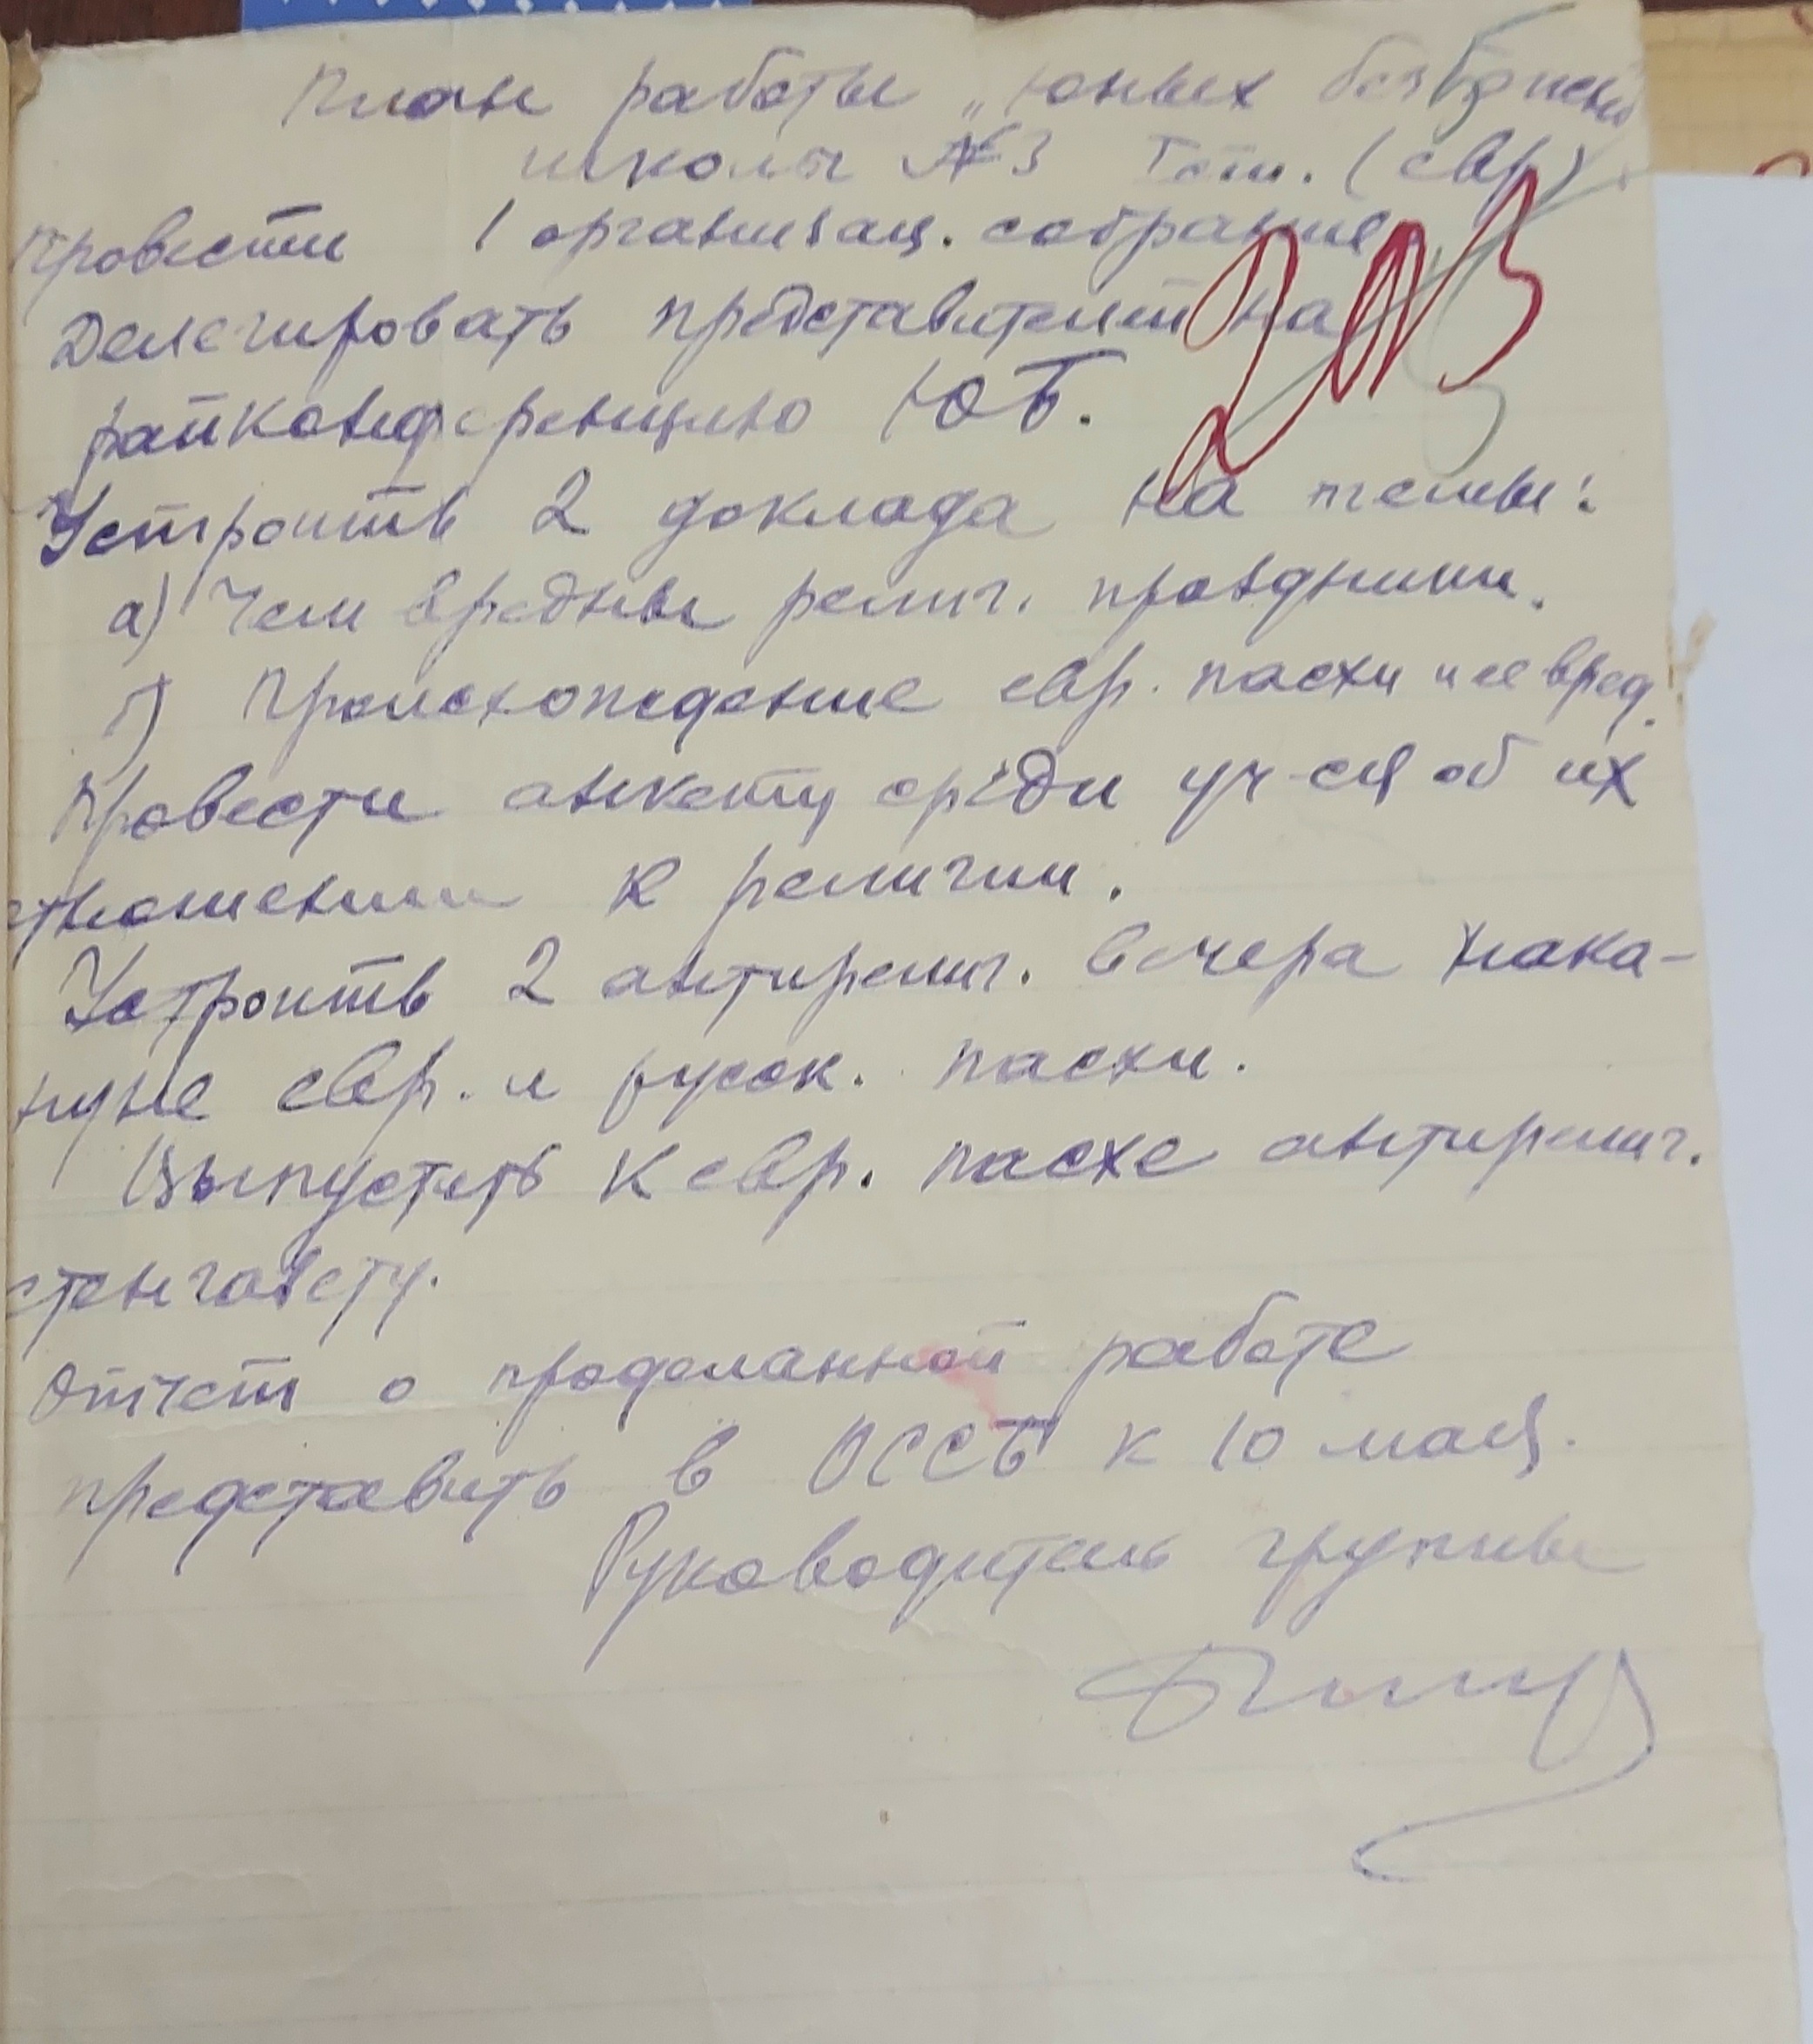 План работы „юных безбожник
школы №3 Гом. (евр)
Провести 1 организац. собрание
Делегировать представител на
райконференцию ЮБ.
Устроить 2 доклада на темы:
а) Чем вредны религ. праздники.
б) Происхождение евр. пасхи и ее вред.
Провести анкету среди уч-ся об их
отношении к религии.
Устроить 2 антирелиг. вечера нака-
нуне евр. и русск. пасхи.
Выпустить к евр. пасхе антирелиг.
стенгазету.
Отчет о проделанной работе
представить в ОССБ к 10 мая.
Руководитель группы